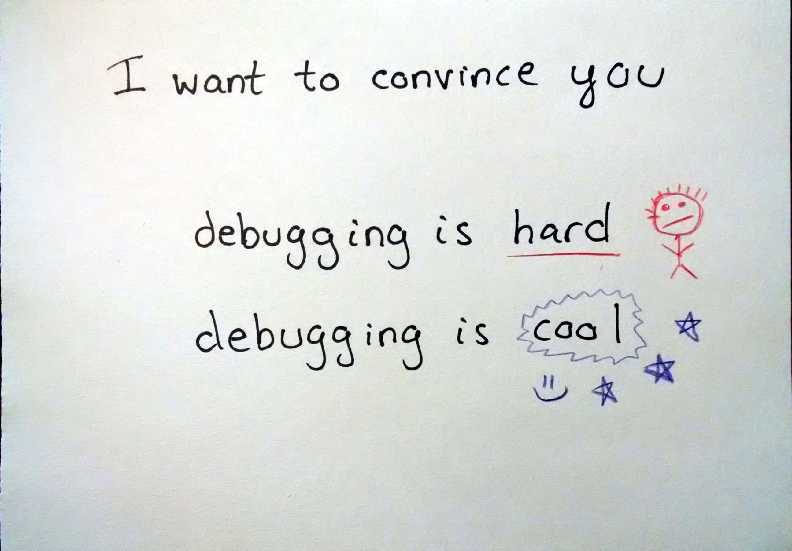 I want to convince you
debugging is hard
debugging is cool